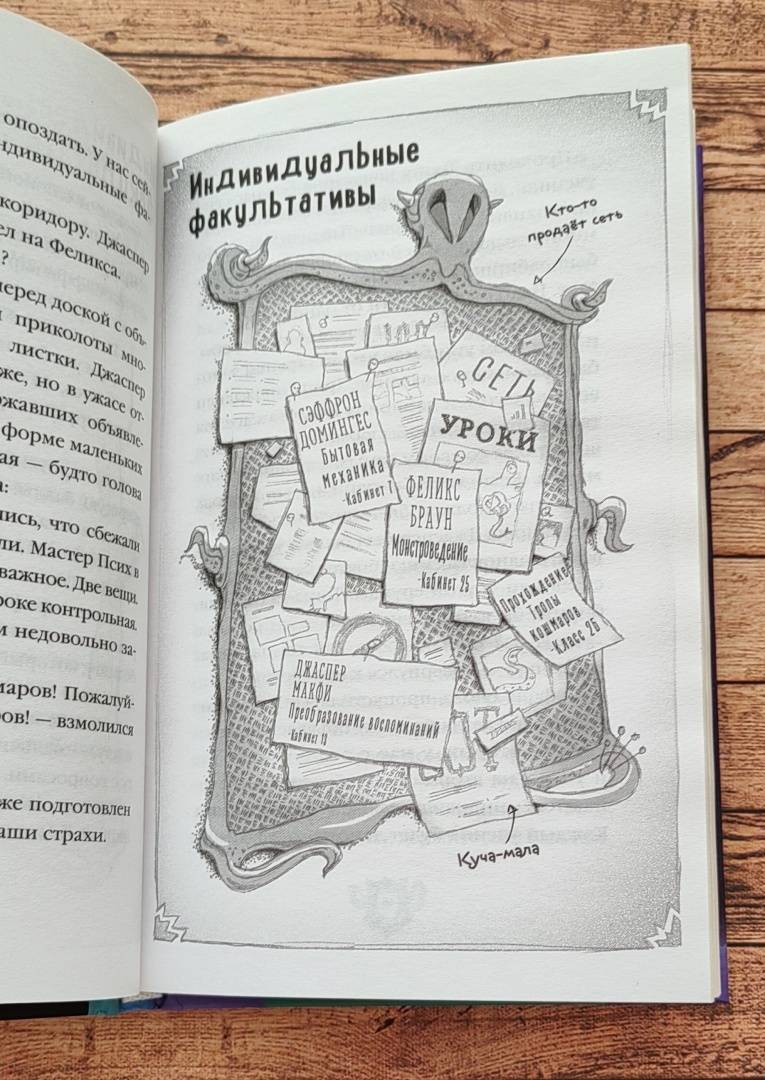 опоздать. У нас сей-
ндивидуальные фа-
коридору. Джаспер
ел на Феликса.
?
перед доской с объ-
и приколоты мно-
листки. Джаспер
же, но в ужасе от-
ржавших объявле-
форме маленьких
ая — будто голова
а:
лись, что сбежали
ли. Мастер Псих в
важное. Две вещи.
роке контрольная.
м недовольно за-
маров! Пожалуй-
ров! — взмолился
же подготовлен
аши страхи.
Индивидуальные
факультативы
Кто-то
продаёт сеть
СЕТЬ
УРОКИ
СЭФФРОН
ДОМИНГЕС
Бытовая
механика
-Кабинет 7
ФЕЛИКС
БРАУН
Монстроведение
-Кабинет 25
Прохождение
Тропы
Кошмаров
-Класс 2Б
ДЖАСПЕР
МАКФИ
Преобразование воспоминаний
-Кабинет 13
Куча-мала